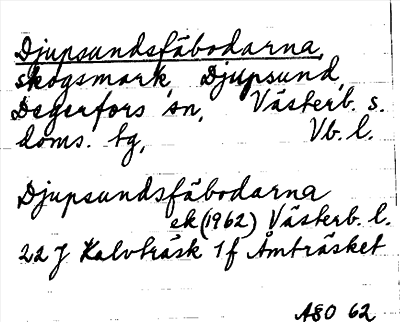 Djupsundsfäbodarna,
skogsmark, Djupsund,
Degerfors sn, Västerb. s.
doms. tg, Vb. l.
Djupsundsfäbodarna
ek (1962) Västerb. l.
22 J Kalvträsk 1 f Åmträsket
A80 62